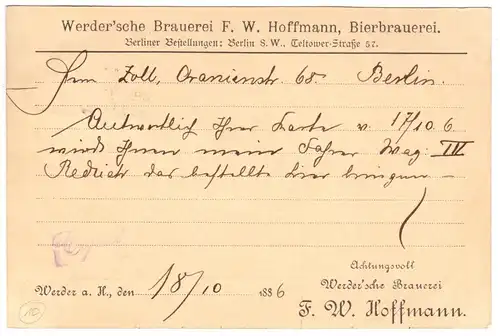 Werder'sche Brauerei F. W. Hoffmann, Bierbrauerei.
Berliner Bestellungen: Berlin S.W., Teltower-Straße 57.
Herrn Zoll, Oranienstr. 68 Berlin.
Antwortlich Ihrer Karte v. 17/10. 6
wird Ihnen mein Fahrer Wag: IV
das bestellte Bier bringen
Achtungsvoll
Werder'sche Brauerei
Werder a. H., den 18/10 1886
F. W. Hoffmann.
10